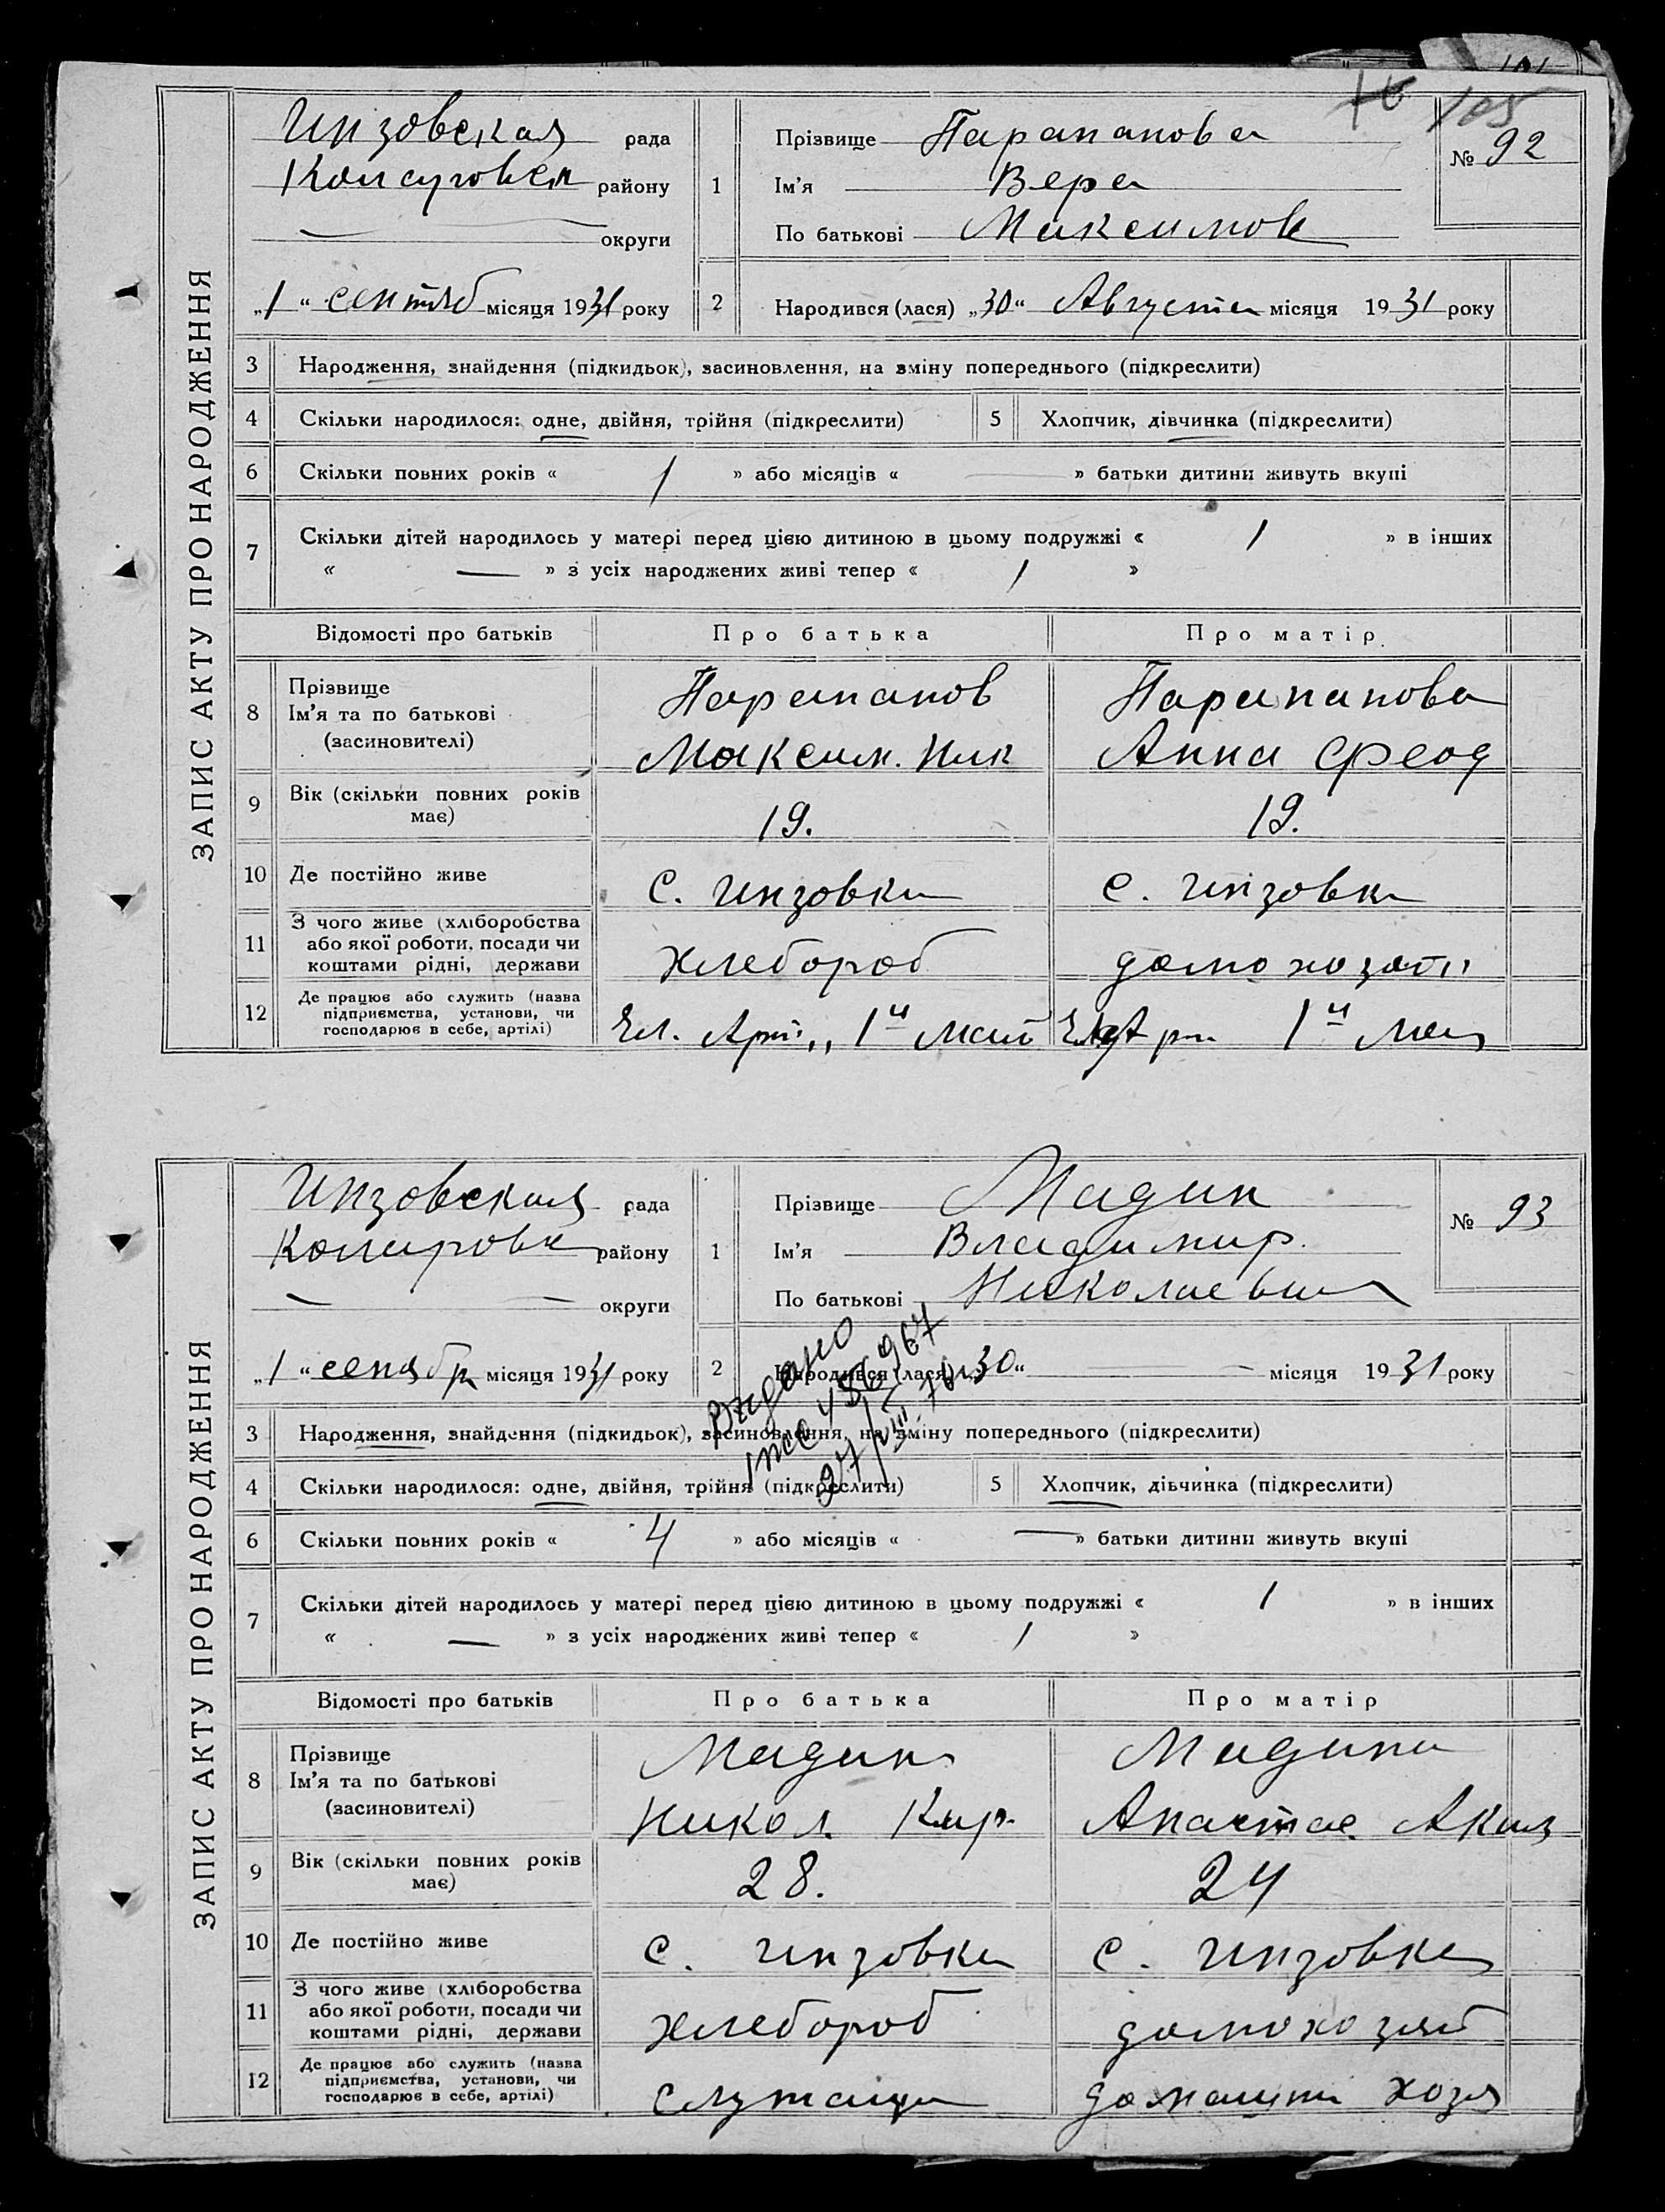 105
ЗАПИС АКТУ ПРО НАРОДЖЕННЯ
Инзовская рада
району
округи
„1“ сентяб місяця 1931 року
1 Прізвище Парапанова
Ім'я Вера
По батькові Максимов
№ 92
2 Народився (лася) „30“ Августа місяця 1931 року
3 Народження, знайдення (підкидьок), засиновлення, на зміну попереднього (підкреслити)
4 Скільки народилося: одне, двійня, трійня (підкреслити) 5 Хлопчик, дівчинка (підкреслити)
6 Скільки повних років « 1 » або місяців « — » батьки дитини живуть вкупі
7 Скільки дітей народилось у матері перед цією дитиною в цьому подружжі « 1 » в інших
« — » з усіх народжених живі тепер « 1 »
Відомості про батьків Про батька Про матір
8 Прізвище Парапанов Парапанова
Ім'я та по батькові
(засиновителі) Максим. Ник Анна Феод
9 Вік (скільки повних років
має) 19. 19.
10 Де постійно живе С. Инзовка С. Инзовка
11 З чого живе (хліборобства
або якої роботи, посади чи
коштами рідні, держави Хлебороб домохозяй
12 Де працює або служить (назва
підприємства, установи, чи
господарює в себе, артілі) Арт. „1й Май 1й Май
ЗАПИС АКТУ ПРО НАРОДЖЕННЯ
Инзовская рада
району
округи
„1“ місяця 1931 року
1 Прізвище Мадин
Ім'я Владимир.
По батькові Николаевич
№ 93
2 Народився (лася) „30“ — місяця 1931 року
Видано
456967
27/VIII-76
3 Народження, знайдення (підкидьок), засиновлення, на зміну попереднього (підкреслити)
4 Скільки народилося: одне, двійня, трійня (підкреслити) 5 Хлопчик, дівчинка (підкреслити)
6 Скільки повних років « 4 » або місяців « — » батьки дитини живуть вкупі
7 Скільки дітей народилось у матері перед цією дитиною в цьому подружжі « 1 » в інших
« — » з усіх народжених живі тепер « 1 »
Відомості про батьків Про батька Про матір
8 Прізвище Мадин Мадина
Ім'я та по батькові
(засиновителі) Никол. Кир. Анастас.
9 Вік (скільки повних років
має) 28. 24
10 Де постійно живе С. Инзовка С. Инзовка
11 З чого живе (хліборобства
або якої роботи, посади чи
коштами рідні, держави Хлебороб домохозяй
12 Де працює або служить (назва
підприємства, установи, чи
господарює в себе, артілі) Служащи хозя